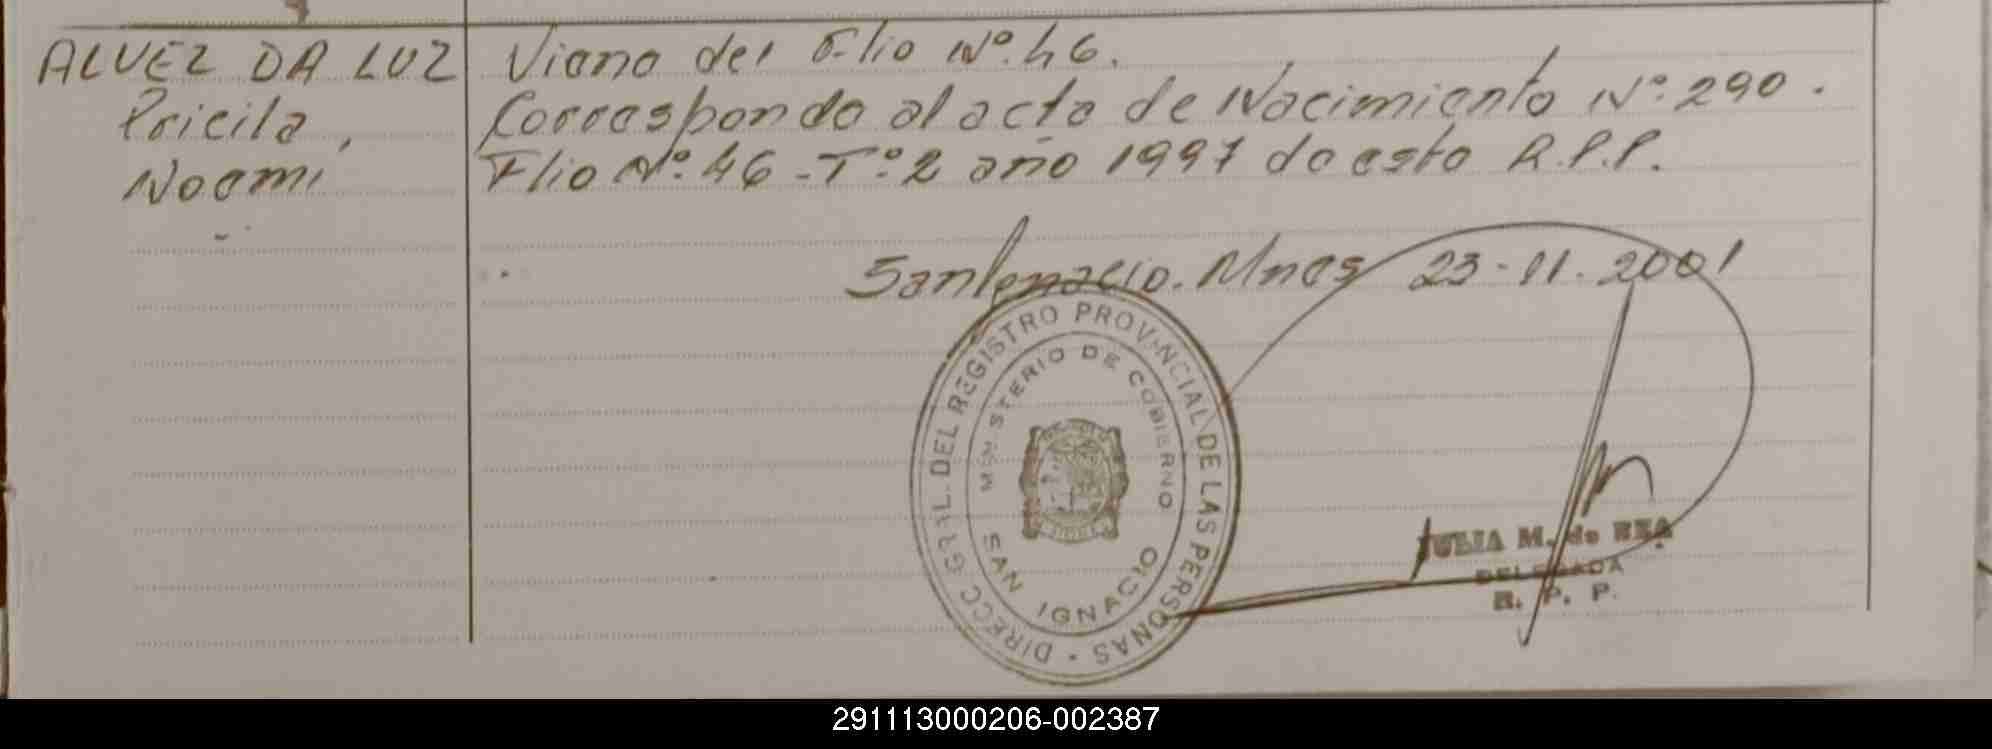 ALVEZ DA LUZ
Pricila,
Noemi
Viene del Flio Nº 46.
Corresponde al acta de Nacimiento Nº 290.
Flio Nº 46 - Tº 2 año 1997 de esta R.P.P.
San Ignacio. Mnes 23-11-2001
DIRECC GRAL. DEL REGISTRO PROVINCIAL DE LAS PERSONAS
MINISTERIO DE GOBIERNO
SAN IGNACIO
JULIA M. de REA
DELEGADA
R. P. P.
291113000206-002387